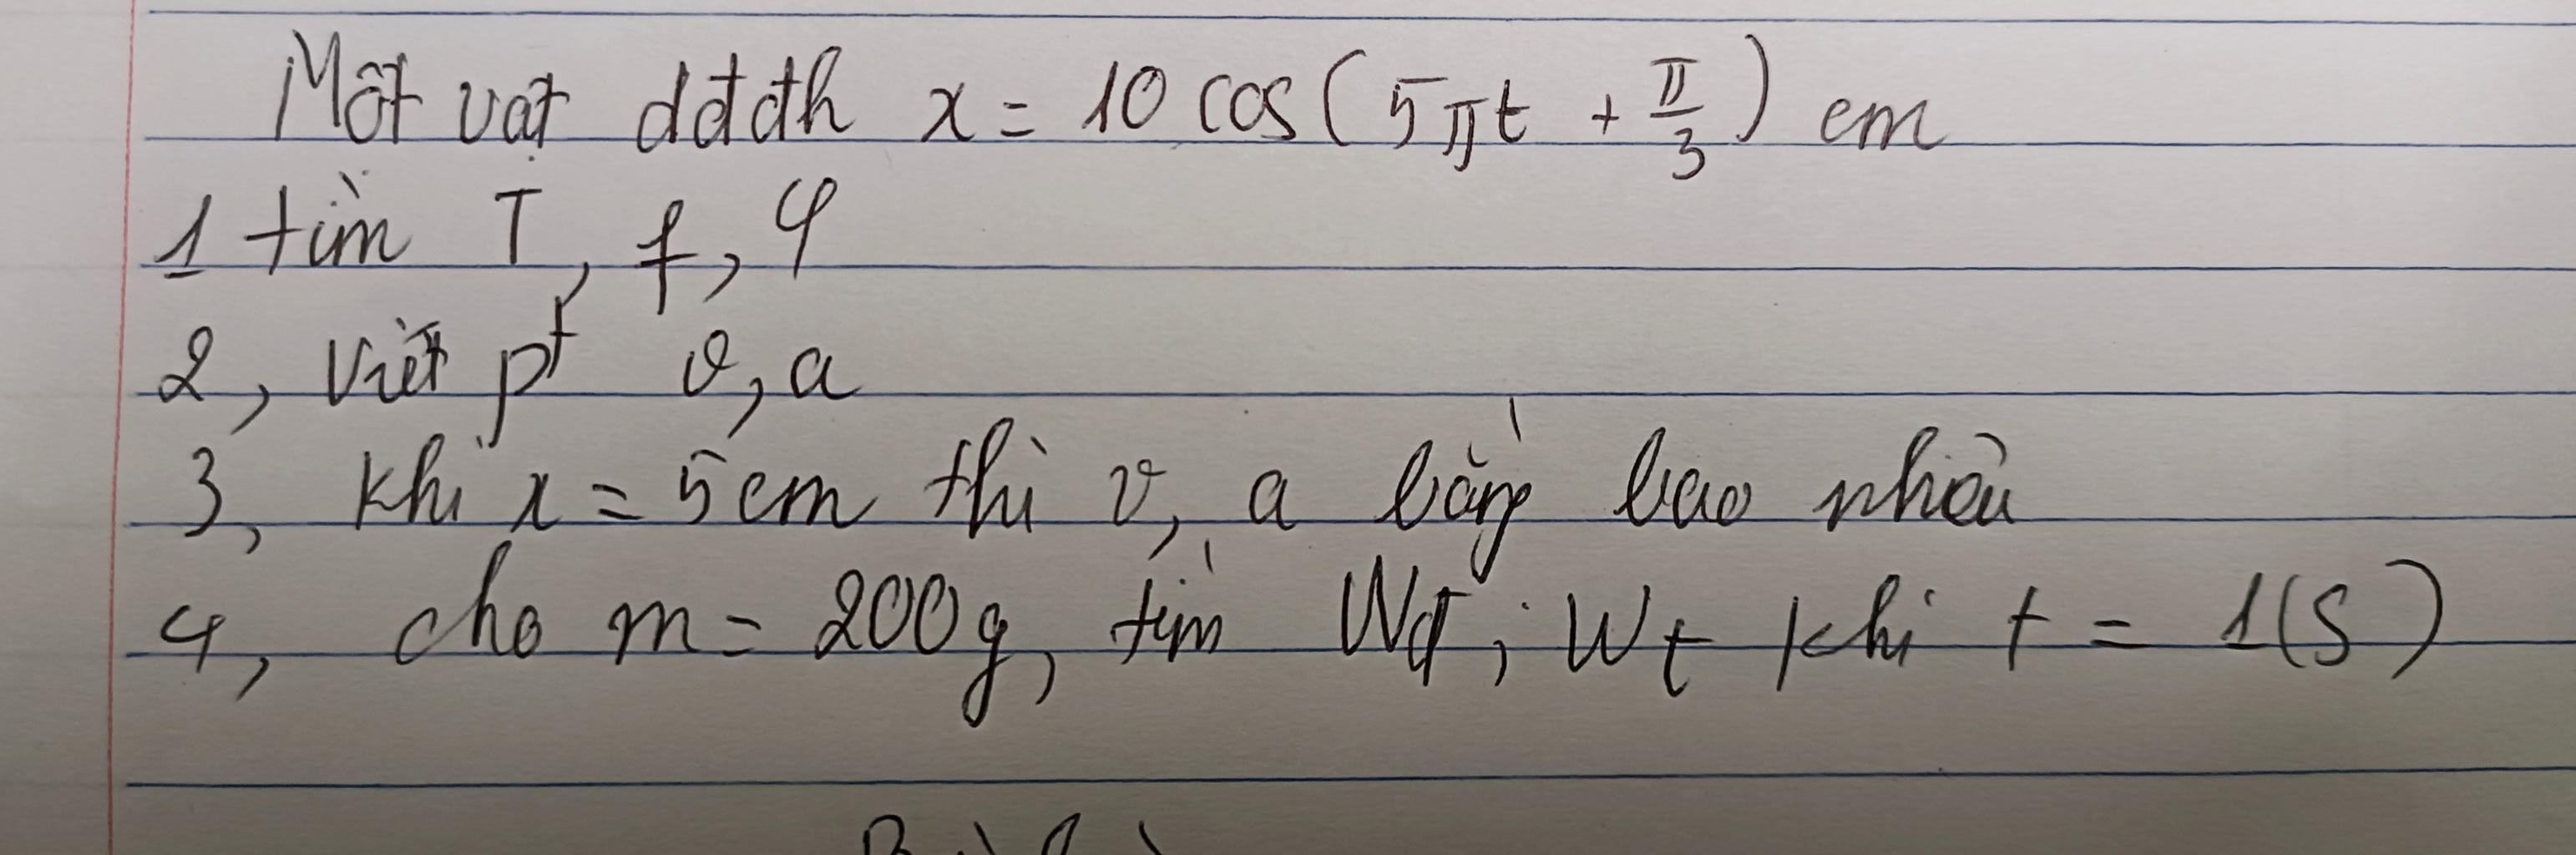 Một vật dđđh x = 10 cos(5πt + π/3) cm
1 tìm T, f, φ
2, Viết pt v, a
3, khi x = 5cm thì v, a bằng bao nhiêu
4, cho m = 200g, tìm Wđ; Wt khi t = 1(s)